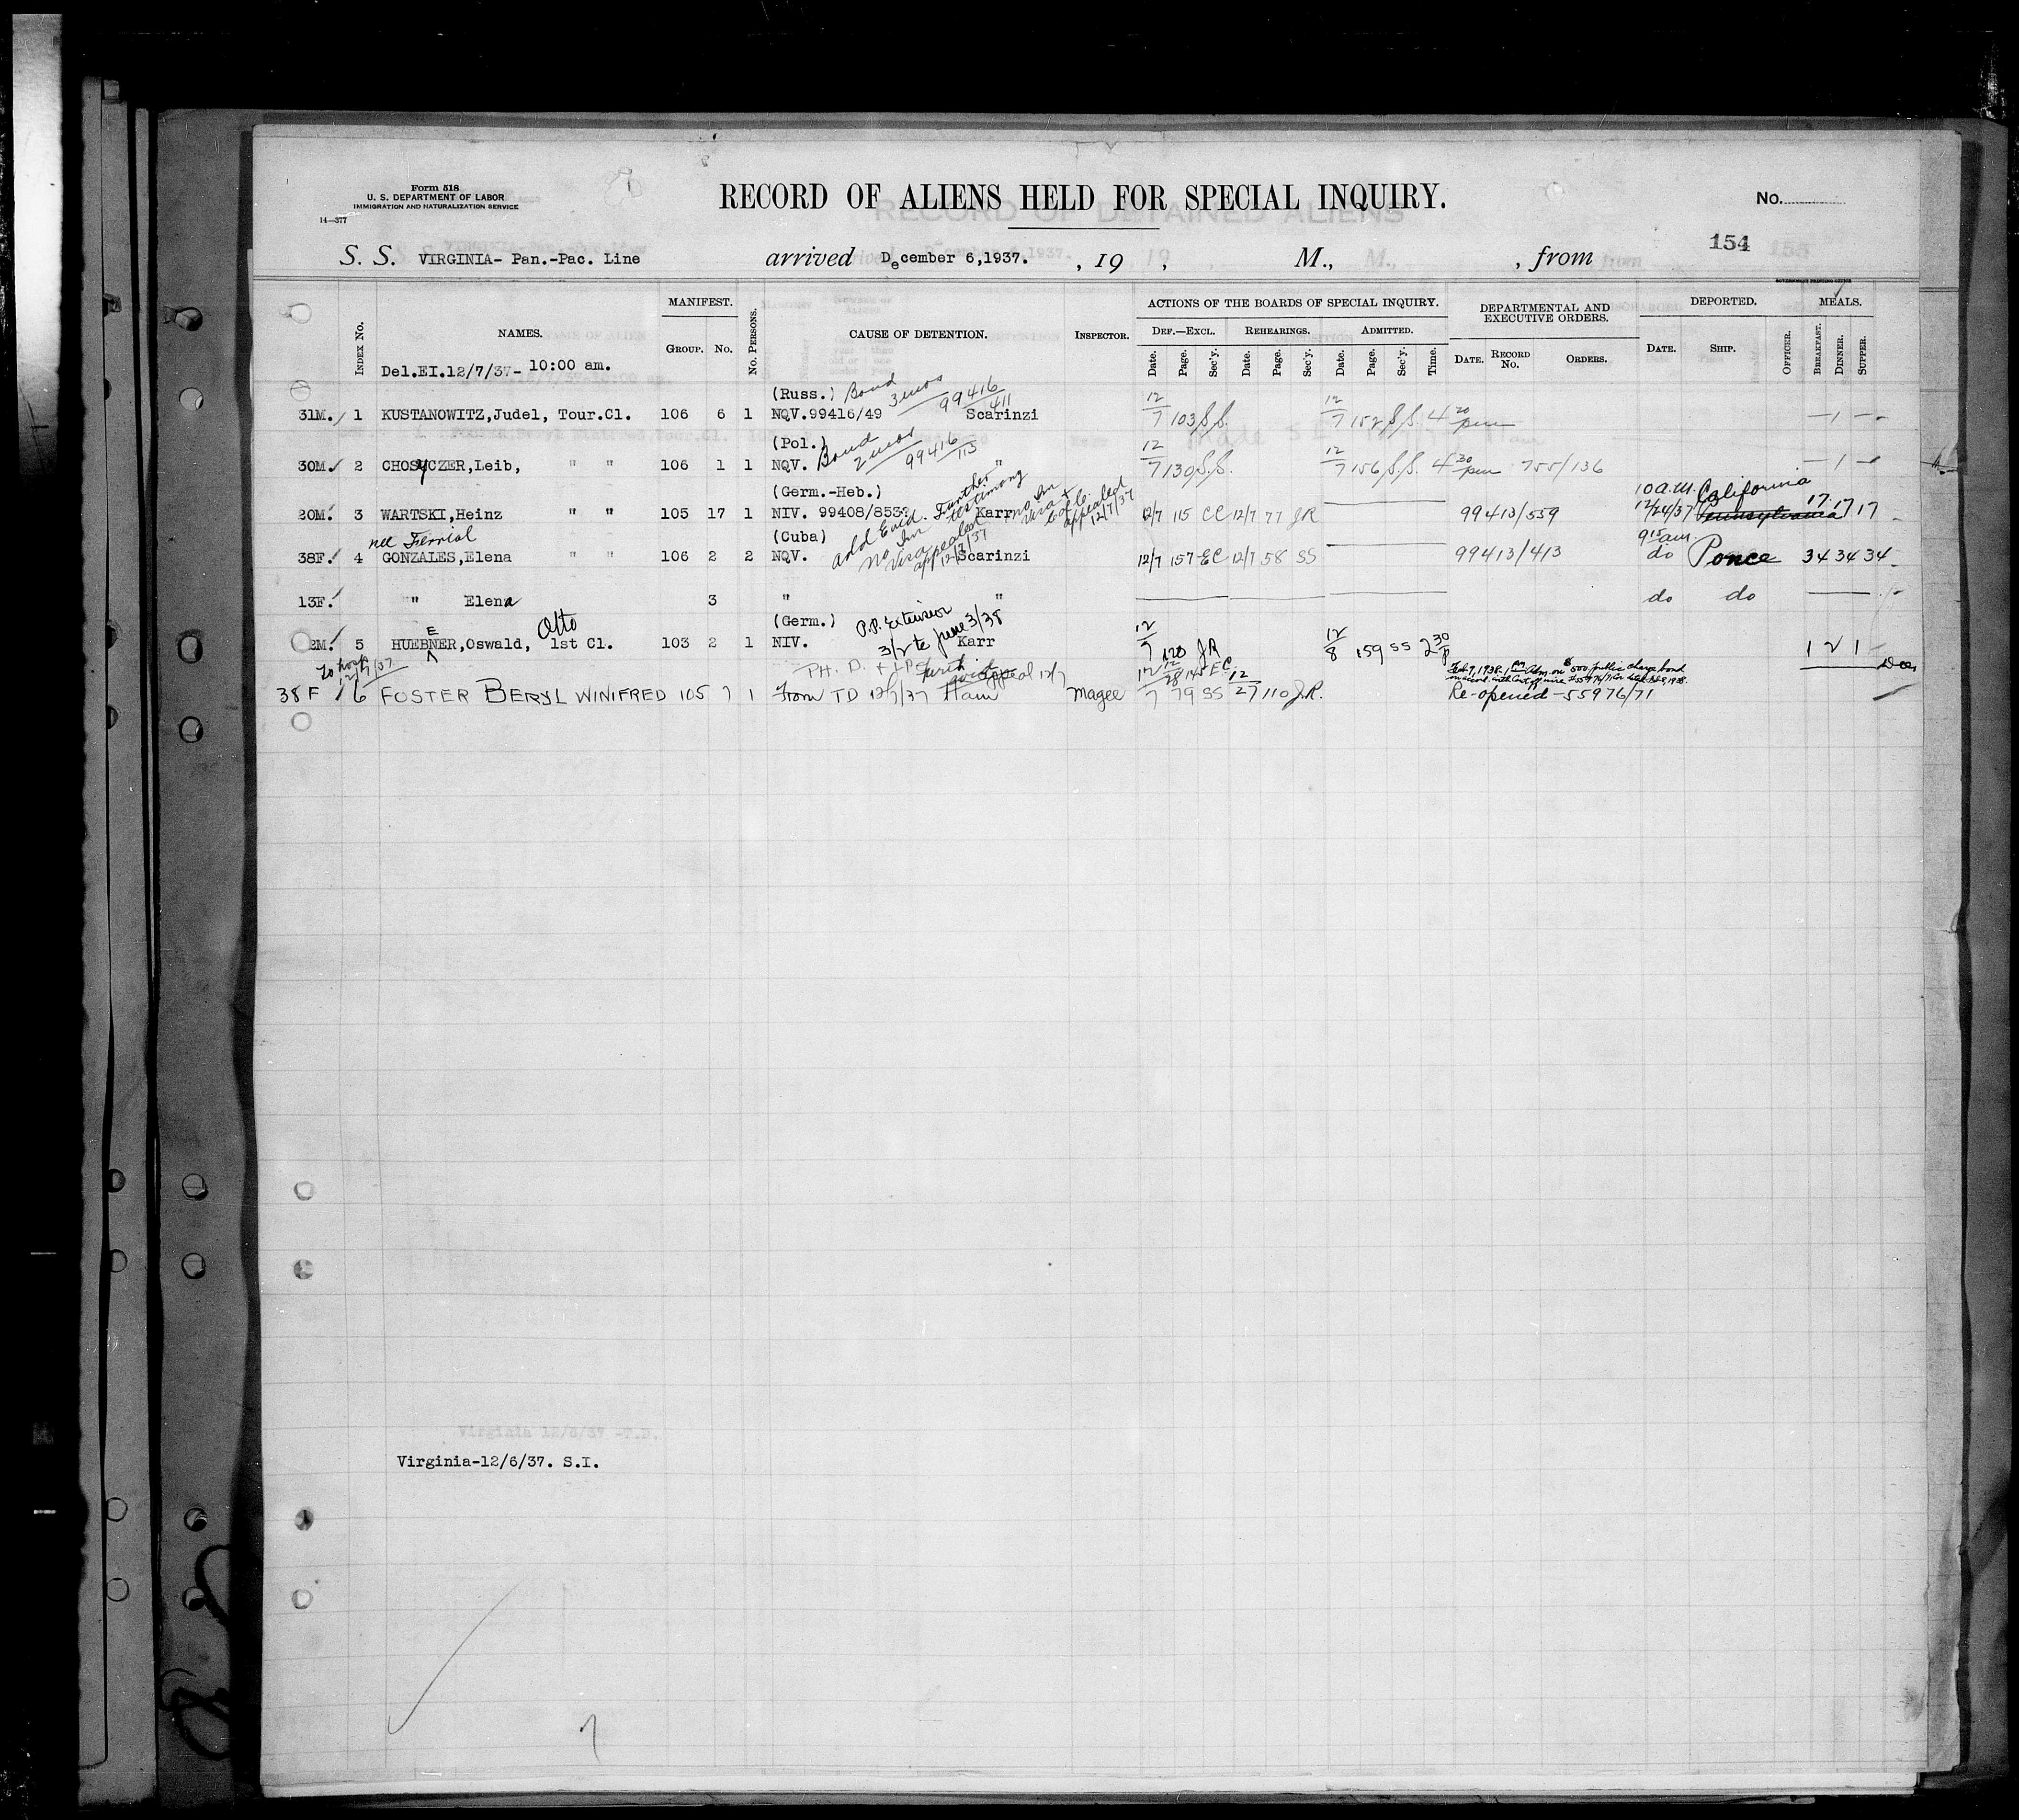 Form 518
U. S. DEPARTMENT OF LABOR
IMMIGRATION AND NATURALIZATION SERVICE
14—377
RECORD OF ALIENS HELD FOR SPECIAL INQUIRY.
No.
154
S. S. VIRGINIA- Pan.-Pac. Line arrived December 6,1937. , 19 , M., , from
GOVERNMENT PRINTING OFFICE
INDEX No. NAMES. MANIFEST. GROUP. No. No. PERSONS. CAUSE OF DETENTION. INSPECTOR. ACTIONS OF THE BOARDS OF SPECIAL INQUIRY. DEPARTMENTAL AND EXECUTIVE ORDERS. DEPORTED. MEALS.
DEF.—EXCL. REHEARINGS. ADMITTED.
Date. Page. Sec'y. Date. Page. Sec'y. Date. Page. Sec'y. Time. DATE. RECORD No. ORDERS. DATE. SHIP. OFFICER. BREAKFAST. DINNER. SUPPER.
Del.EI.12/7/37- 10:00 am.
(Russ.) Bond 3 mos 99416/411
31M. 1 KUSTANOWITZ,Judel, Tour.Cl. 106 6 1 NQV.99416/49 Scarinzi 12/7 103 S.S. 12/7 152 S.S. 4 20 pm — 1 —
(Pol.) Bond 2 mos 99416/113
30M. 2 CHOSYCZER,Leib, " " 106 1 1 NQV. " 12/7 130 S.S. 12/7 156 S.S. 4 30 pm 755/136 — 1 —
(Germ.-Heb.) Further testimony no Im Visa + appealed 12/7/37 10 a.m. California
20M. 3 WARTSKI,Heinz " " 105 17 1 NIV. 99408/853 Karr 12/7 115 CC 12/7 77 JR 99413/559 12/24/37 Pennsylvania 17 17 17
nee Ferrial (Cuba) add Evid. no Im Visa appealed 12/7/37 9 15 am
38F. 4 GONZALES,Elena " " 106 2 2 NQV. Scarinzi 12/7 157 EC 12/7 58 SS 99413/413 do Ponce 34 34 34
13F. " Elena 3 " " do do
(Germ.) P.P. Extension 3/2 to June 3/38
M. 5 HUEBENER,Oswald, Otto 1st Cl. 103 2 1 NIV. Karr 12/7 120 JR 12/8 159 SS 2 30 P 1 2 1
PH. D. + LPC appeal 12/7 12/28 145 EC
Feb 9, 1938. Adm. on $500 public charge bond
38 F 6 FOSTER BERYL WINIFRED 105 7 1 From TD 12/7/37 11 am Magee 12/7 79 SS 12/27 110 J.R. Re-opened -55976/71
Virginia-12/6/37. S.I.